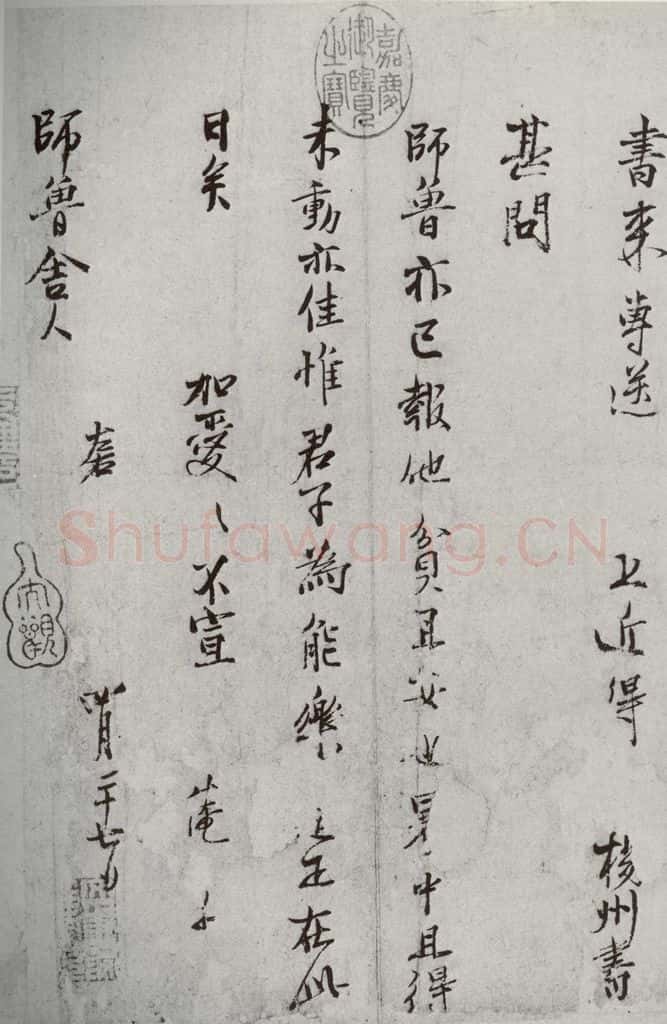 書来專送 上近得 揚州書
甚問
師魯亦已報他貧且安也暑中且得
未動亦佳惟君子為能樂道正在此
日矣 加愛〻不宣 淹
師魯舍人
四月二十七日
嘉慶御覽之寶
大觀
Shufawang.CN